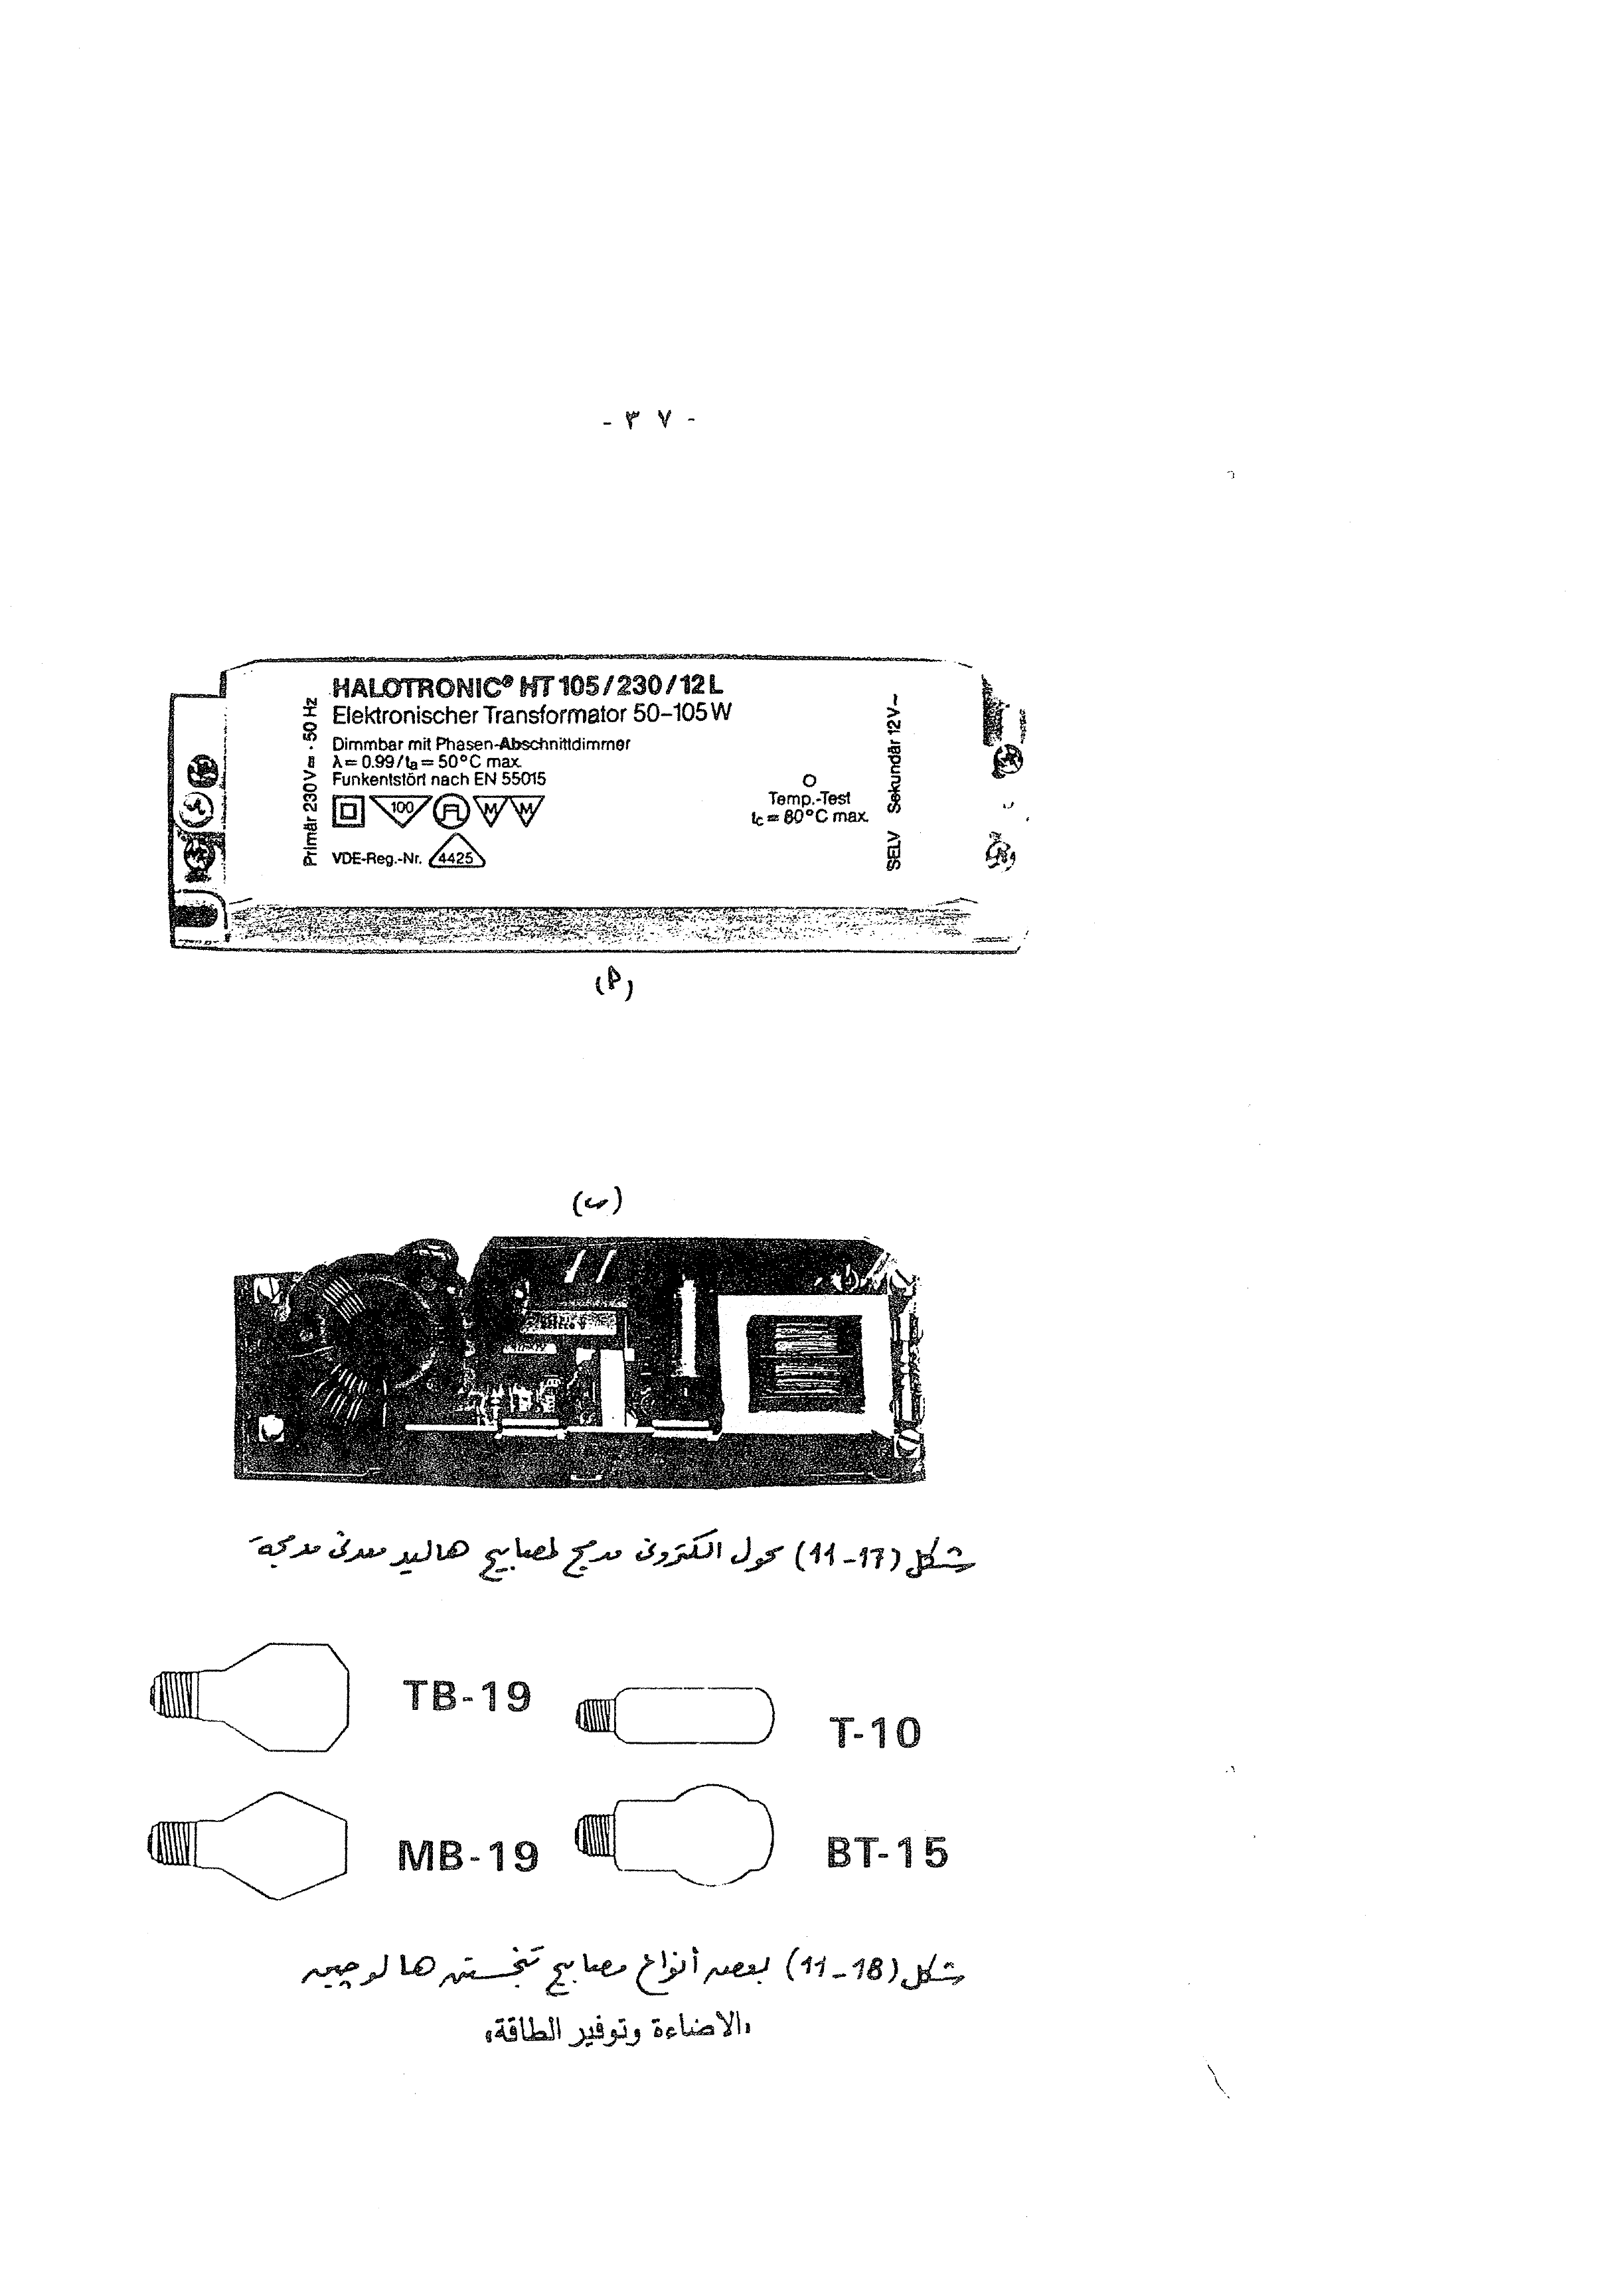 - ٣ ٧ -
HALOTRONIC® HT 105/230/12 L
Elektronischer Transformator 50-105 W
Dimmbar mit Phasen-Abschnittdimmer
λ = 0.99/ta = 50°C max.
Funkentstört nach EN 55015
100
M M
VDE-Reg.-Nr. 4425
Primär 230V≂ · 50 Hz
Temp.-Test
tc = 80°C max.
SELV Sekundär 12V~
(أ)
(ب)
شكل (17-11) محول الكترونى مدمج لمصابيح هاليد معدنى مدمجة
TB-19
T-10
MB-19
BT-15
شكل (18-11) بعض أنواع مصابيح تنجستن هالوجين
«الاضاءة وتوفير الطاقة»